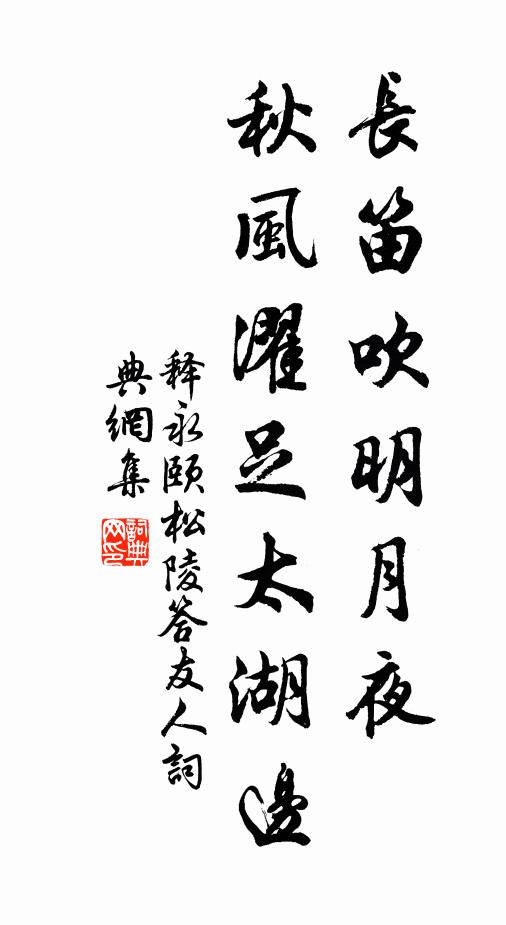 長笛吹明月夜
秋風濯足太湖邊
释永颐松陵答友人詞
典網集
詞典
网印